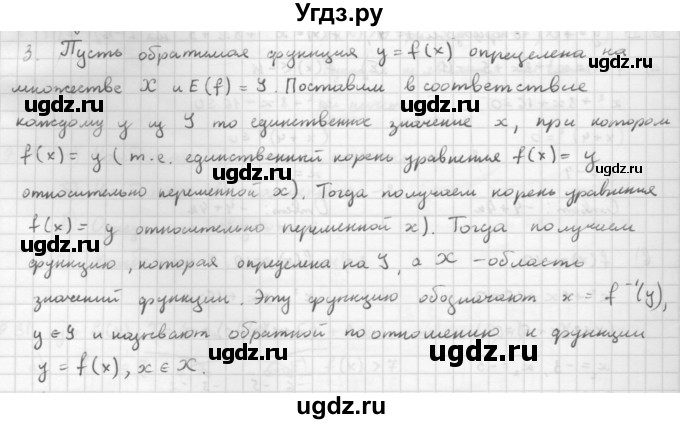 Угдз.ру
3. Пусть обратимая функция y = f(x) определена на
множестве X и E(f) = Y. Поставим в соответствие
каждому y из Y то единственное значение x, при котором
f(x) = y (т.е. единственный корень уравнения f(x) = y
относительно переменной x). Тогда получаем корень уравнения
f(x) = y относительно переменной x). Тогда получаем
функцию, которая определена на Y, а X - область
значений функции. Эту функцию обозначают x = f⁻¹(y),
y ∈ Y и называют обратной по отношению к функции
y = f(x), x ∈ X.
ugdz.ru
ugdz.ru
ugdz.ru
ugdz.ru
ugdz.ru
ugdz.ru
ugdz.ru
ugdz.ru
ugdz.ru
ugdz.ru